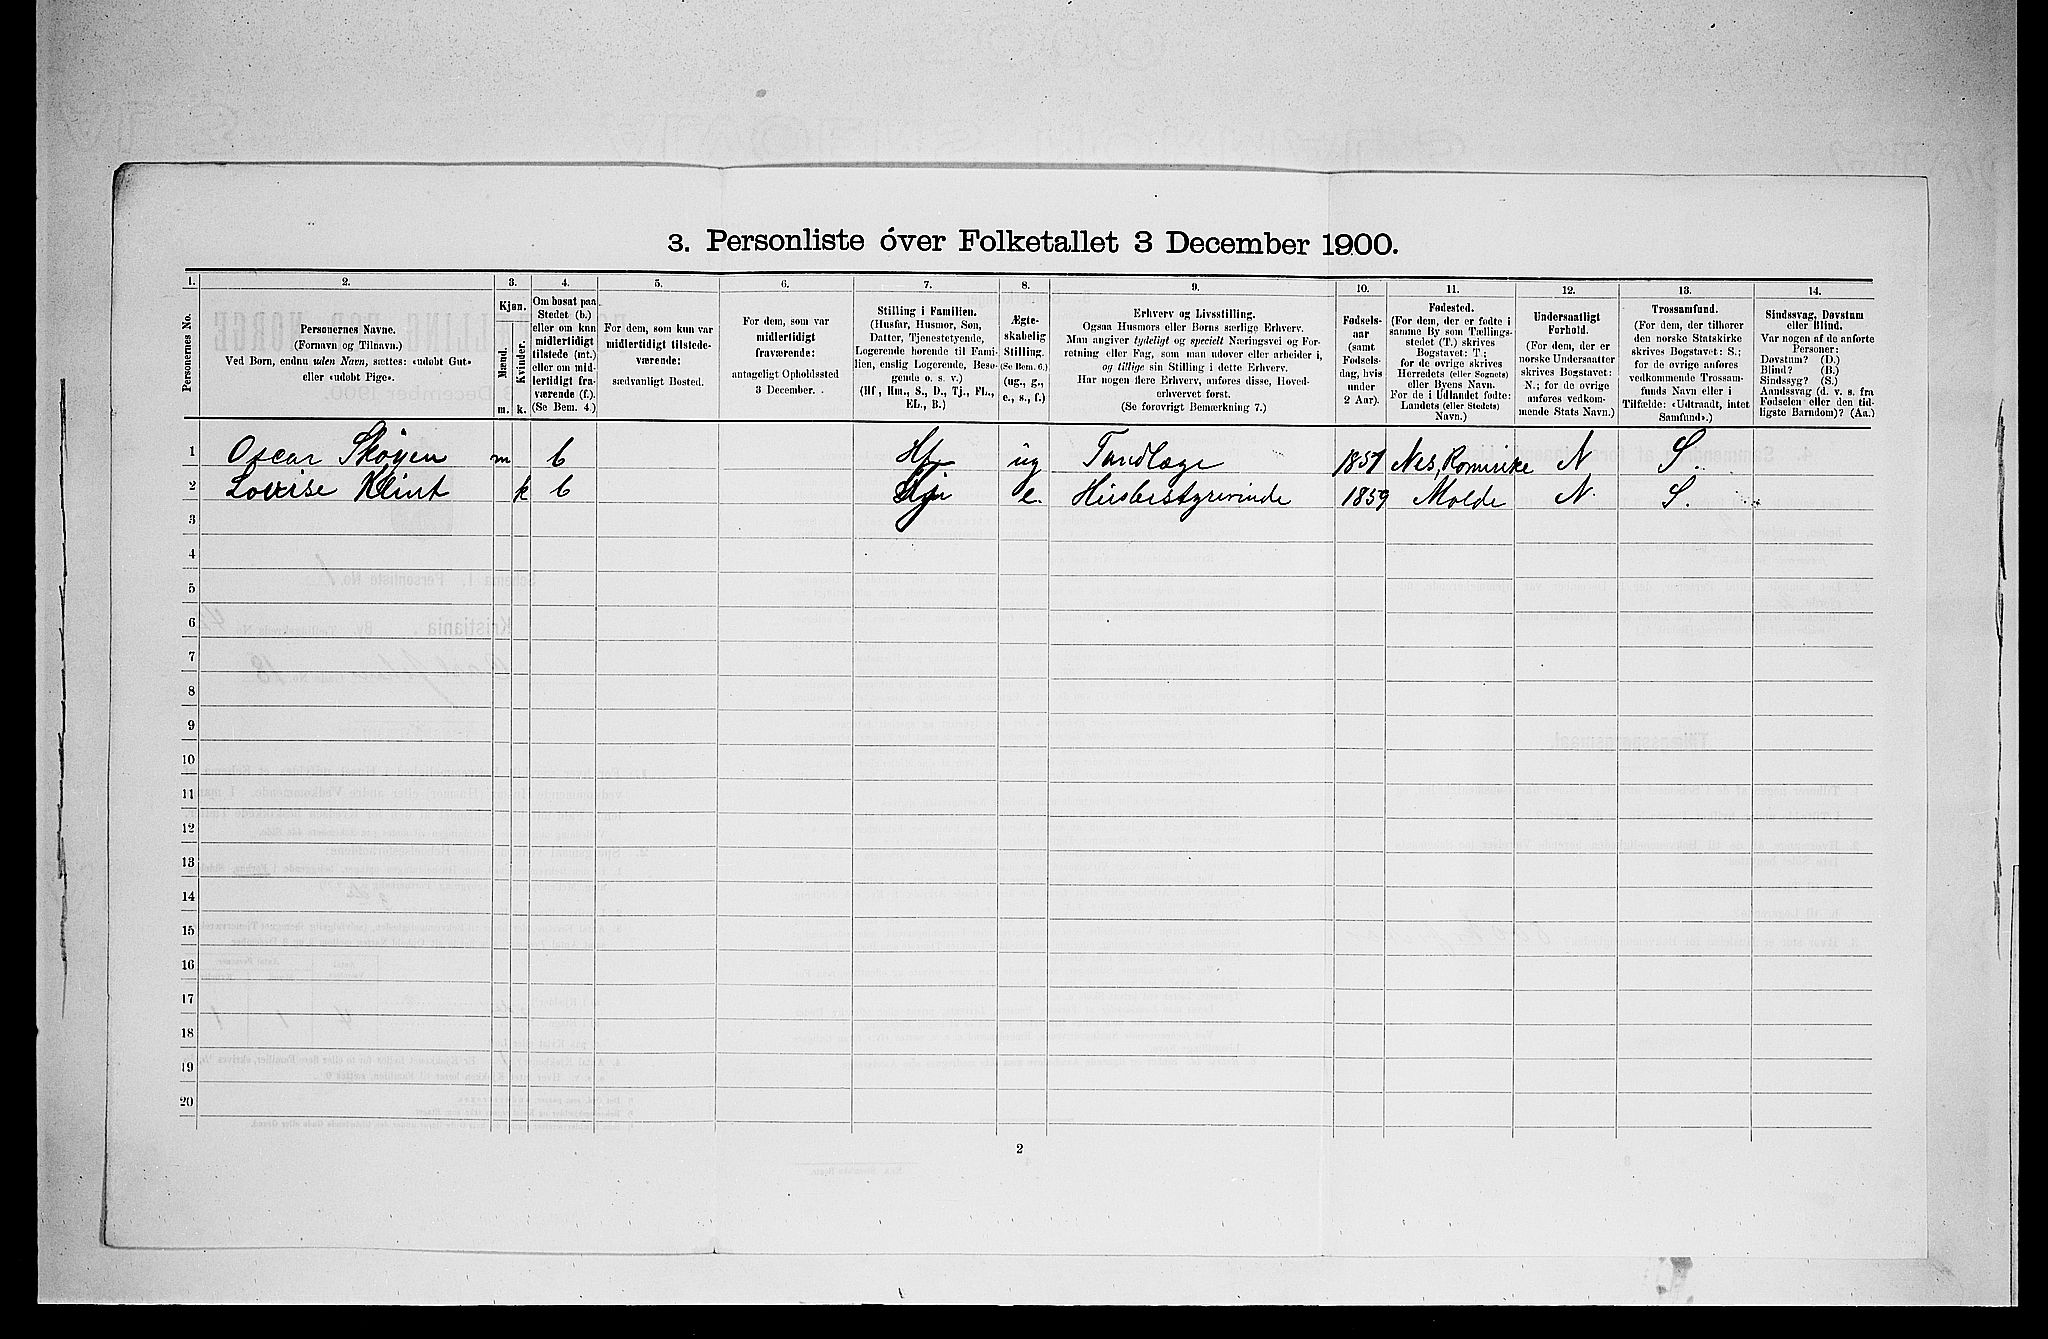 3. Personliste óver Folketallet 3 December 1900.
1. 2. 3. 4. 5. 6. 7. 8. 9. 10. 11. 12. 13. 14.
Personernes No.
Personernes Navne.
(Fornavn og Tilnavn.)
Ved Børn, endnu uden Navn, sættes: «udøbt Gut»
eller «udøbt Pige».
Kjøn.
Mænd.
Kvinder.
m. k.
Om bosat paa
Stedet (b.)
eller om kun
midlertidigt
tilstede (mt.)
eller om mid-
lertidigt fra-
værende (f.).
(Se Bem. 4.)
For dem, som kun var
midlertidigt tilstede-
værende:
sædvanligt Bosted.
For dem, som var
midlertidigt
fraværende:
antageligt Opholdssted
3 December.
Stilling i Familien.
(Husfar, Husmor, Søn,
Datter, Tjenestetyende,
Logerende hørende til Fami-
lien, enslig Logerende, Besø-
gende o. s. v.)
(Hf, Hm., S., D., Tj., FL.,
EL., B.)
Ægte-
skabelig
Stilling.
(Se Bem. 6.)
(ug., g.,
e., s., f.)
Erhverv og Livsstilling.
Ogsaa Husmors eller Børns særlige Erhverv.
Man angiver tydeligt og specielt Næringsvei og For-
retning eller Fag, som man udøver eller arbeider i,
og tillige sin Stilling i dette Erhverv.
Har nogen flere Erhverv, anføres disse, Hoved-
erhvervet først.
(Se forøvrigt Bemærkning 7.)
Fødsels-
aar
(samt
Fødsels-
dag, hvis
under
2 Aar).
Fødested.
(For dem, der er fødte i
samme By som Tællings-
stedet (T.) skrives
Bogstavet: T.;
for de øvrige skrives
Herredets (eller Sognets)
eller Byens Navn.
For de i Udlandet fødte:
Landets (eller Stedets)
Navn.)
Undersaatligt
Forhold.
(For dem, der er
norske Undersaatter
skrives Bogstavet:
N.; for de øvrige
anføres vedkom-
mende Stats Navn.)
Trossamfund.
(For dem, der tilhører
den norske Statskirke
skrives Bogstavet: S.;
for de øvrige anføres
vedkommende Trossam-
funds Navn eller i
Tilfælde: «Udtraadt, intet
Samfund».)
Sindssvag, Døvstum
eller Blind.
Var nogen af de anførte
Personer:
Døvstum? (D.)
Blind? (B.)
Sindssyg? (S.)
Aandssvag (d. v. s. fra
Fødselen eller den tid-
ligste Barndom)? (Aa.)
1 Oscar Skøyen m b Hf ug Tandlæge 1857 Nes, Romerike N S.
2 Lovise Klint k b Tj e. Husbestyrerinde 1859 Molde N. S.
3
4
5
6
7
8
9
10
11
12
13
14
15
16
17
18
19
20
2